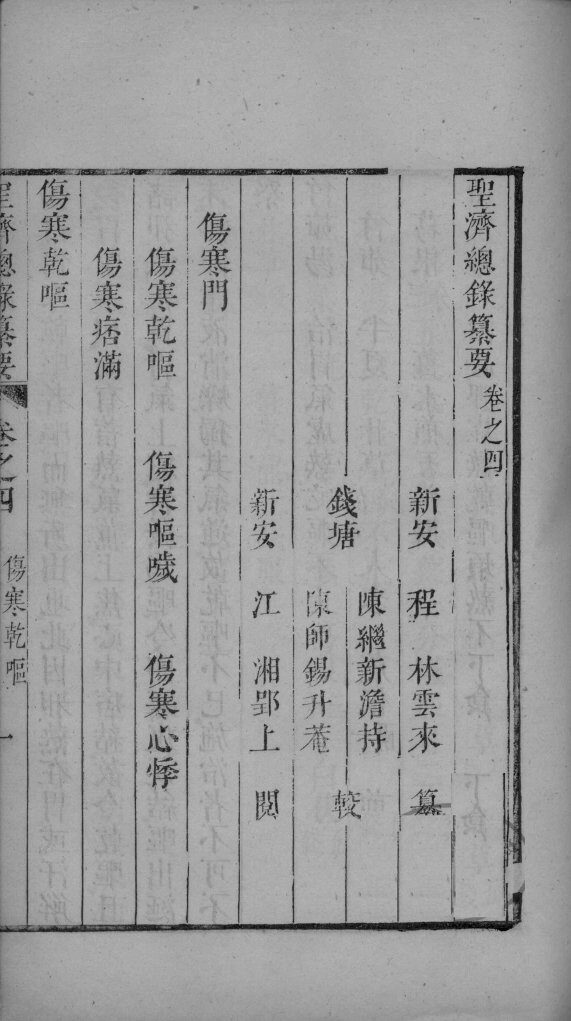 聖濟總錄纂要卷之四
新安 程 林雲來 纂
錢塘 陳繼新澹持 較
陳師錫升菴
新安 江 湘郢上 閱
傷寒門
傷寒乾嘔 傷寒嘔噦 傷寒心悸
傷寒痞滿
傷寒乾嘔
聖濟總錄纂要 卷之四 傷寒乾嘔 一